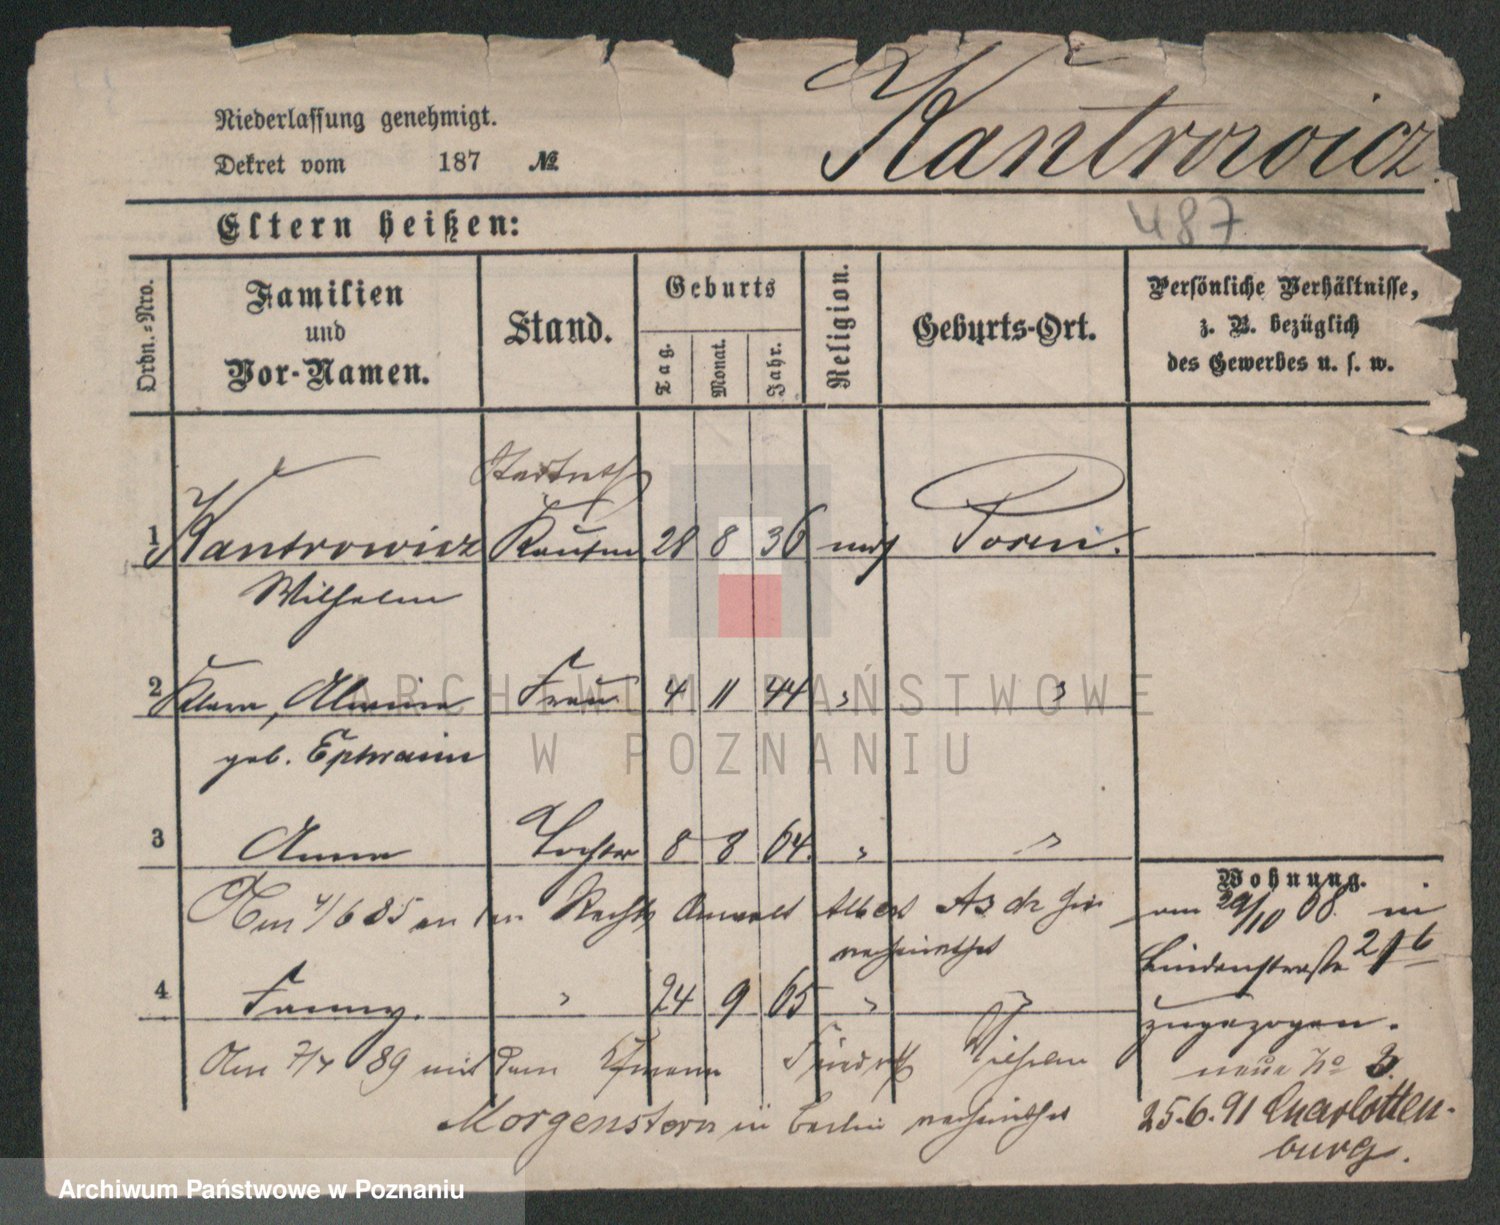 Kantrowicz.
Niederlassung genehmigt.
Dekret vom 187 №
487
Eltern heißen:
Ordn.=Nro.
Familien
und
Vor-Namen.
Stand.
Geburts
Tag.
Monat.
Jahr.
Religion.
Geburts-Ort.
Persönliche Verhältnisse,
z. B. bezüglich
des Gewerbes u. s. w.
Stadtrath
1 Kantrowicz Kaufm 28 8 36 mos Posen.
Wilhelm
2 Klara, Alwine Frau 4 11 44 " "
geb. Ephraim
3 Anna Tochter 8 8 64. " "
Am 4/6 85 an den Rechts Anwalt Albert Aschheim
verheirathet
4 Fanny. " 24 9 65 " "
Am 7/4 89 mit dem Kfmann Friedrich Wilhelm
Morgenstern in Berlin verheirathet
Wohnung.
am 29/10 68. in
Lindenstraße
zugezogen.
neue No 3.
25.6.91 Charlotten-
burg.
ARCHIWUM PAŃSTWOWE
W POZNANIU
Archiwum Państwowe w Poznaniu